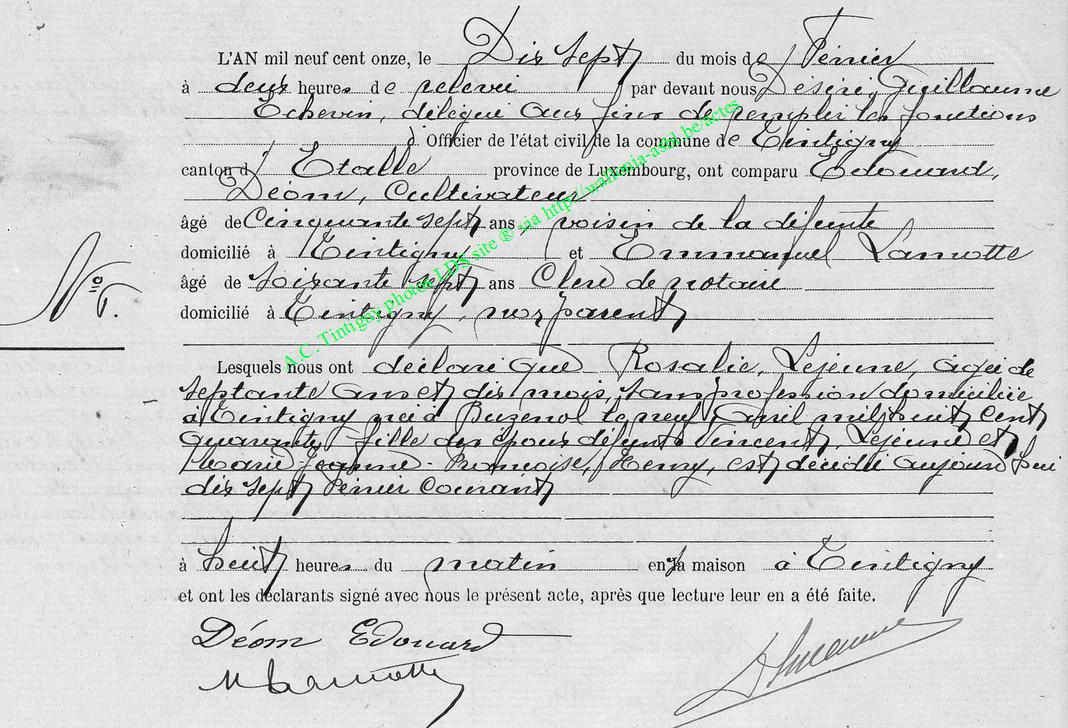 L'AN mil neuf cent onze, le Dix sept du mois de Février
à deux heures de relevée par devant nous Désiré, Guillaume
Echevin, délégué aux fins de remplir les fonctions
d' Officier de l'état civil de la commune de Tintigny
canton d' Etalle province de Luxembourg, ont comparu Edouard,
Déom, Cultivateur
âgé de Cinquante sept ans, voisin de la défunte
domicilié à Tintigny et Emmanuel Lamotte
âgé de soixante sept ans Clerc de notaire
N° 5.
domicilié à Tintigny, non parent
Lesquels nous ont déclaré que Rosalie, Lejeune, âgée de
septante ans et dix mois, sans profession domiciliée
à Tintigny née à Buzenol le neuf Avril mil huit cent
quarante, fille des époux défunts Vincent, Lejeune et
Marie Jeanne - Françoise, Henry, est décédée aujourd'hui
dix sept Février courant
à huit heures du matin en sa maison à Tintigny
et ont les déclarants signé avec nous le présent acte, après que lecture leur en a été faite.
Déom Edouard
Lamotte
A.C. Tintigny photos LDS site ® via http://wallonia-asbl.be/actes